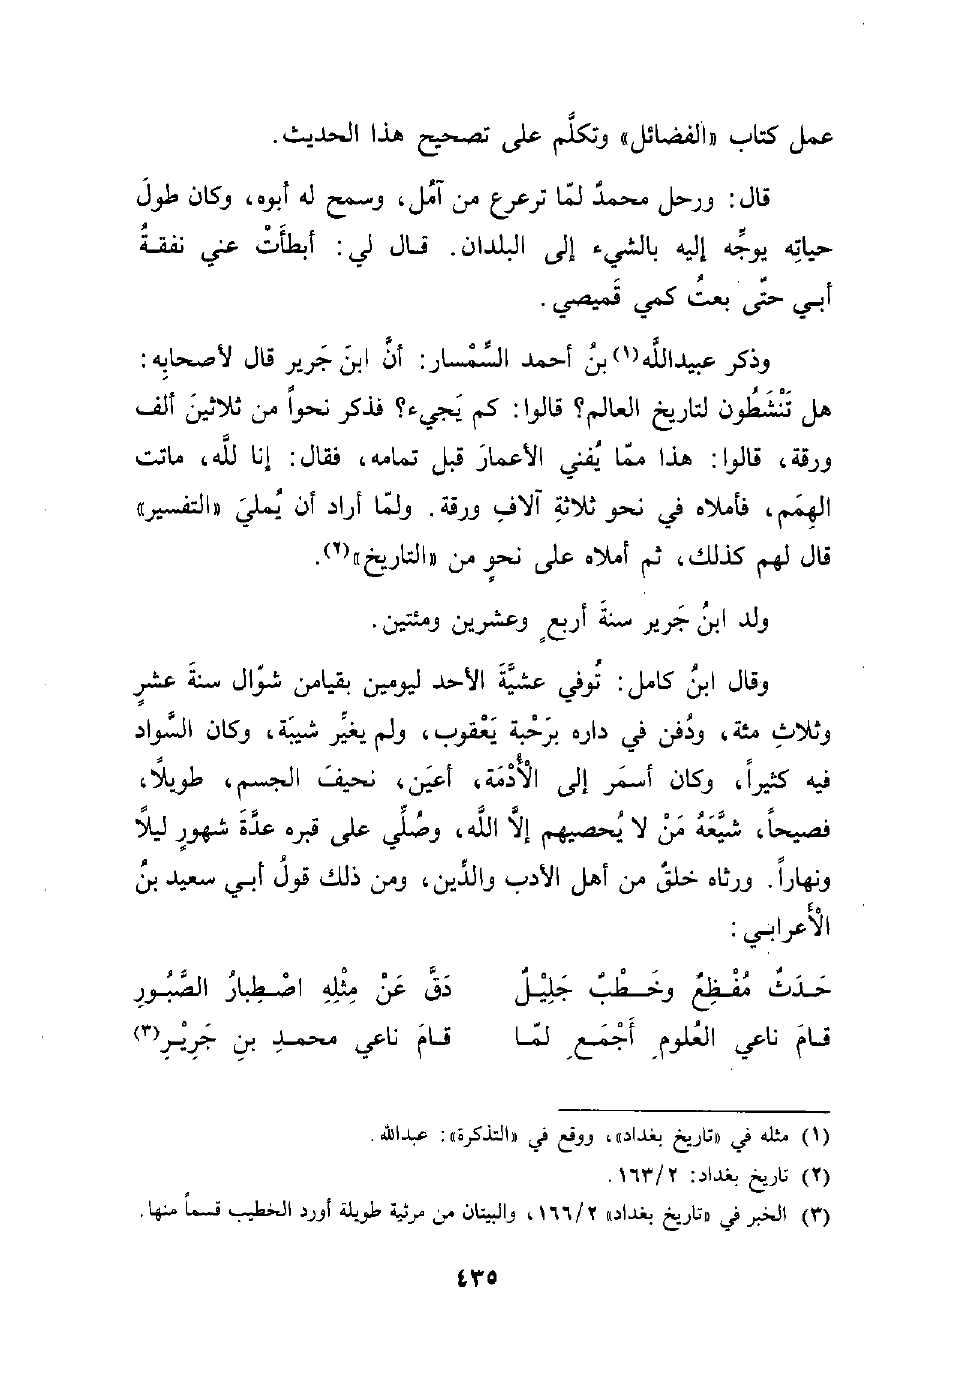 عمل كتاب «الفضائل» وتكلَّم على تصحيح هذا الحديث.
قال: ورحل محمدٌ لمّا ترعرع من آمُل، وسمح له أبوه، وكان طولَ
حياتِه يوجِّه إليه بالشيء إلى البلدان. قال لي: أبطأَتْ عني نفقةُ
أبي حتّى بعتُ كمي قَميصي.
وذكر عبيدالله(١) بنُ أحمد السِّمْسار: أنَّ ابنَ جَرير قال لأصحابِه:
هل تَنْشَطُون لتاريخ العالم؟ قالوا: كم يَجيء؟ فذكر نحواً من ثلاثينَ ألف
ورقة، قالوا: هذا ممّا يُفني الأعمارَ قبل تمامه، فقال: إنا لله، ماتت
الهِمَم، فأملاه في نحو ثلاثةِ آلافِ ورقة. ولمّا أراد أن يُمليَ «التفسير»
قال لهم كذلك، ثم أملاه على نحوٍ من «التاريخ»(٢).
ولد ابنُ جَرير سنةَ أربعٍ وعشرين ومئتين.
وقال ابنُ كامل: تُوفي عشيَّةَ الأحد ليومين بقيامن شوّال سنةَ عشرٍ
وثلاثِ مئة، ودُفن في داره برَحْبة يَعْقوب، ولم يغيِّر شيبَة، وكان السَّواد
فيه كثيراً، وكان أسمَر إلى الأُدْمَة، أعيَن، نحيفَ الجسم، طويلًا،
فصيحاً، شيَّعَهُ مَنْ لا يُحصيهم إلاَّ الله، وصُلِّي على قبره عدَّةَ شهورٍ ليلًا
ونهاراً. ورثاه خلقٌ من أهل الأدب والدِّين، ومن ذلك قولُ أبي سعيد بنُ
الْأَعرابي:
حَدَثٌ مُفْظِعٌ وخَطْبٌ جَلِيْلٌ دَقَّ عَنْ مِثْلِهِ اصْطِبارُ الصَّبُورِ
قامَ ناعي العُلومِ أَجْمَعِ لمّا قامَ ناعي محمدِ بنِ جَرِيْرِ(٣)
(١) مثله في «تاريخ بغداد»، ووقع في «التذكرة»: عبدالله.
(٢) تاريخ بغداد: ٢/ ١٦٣.
(٣) الخبر في «تاريخ بغداد» ٢/ ١٦٦، والبيتان من مرثية طويلة أورد الخطيب قسماً منها.
٤٣٥